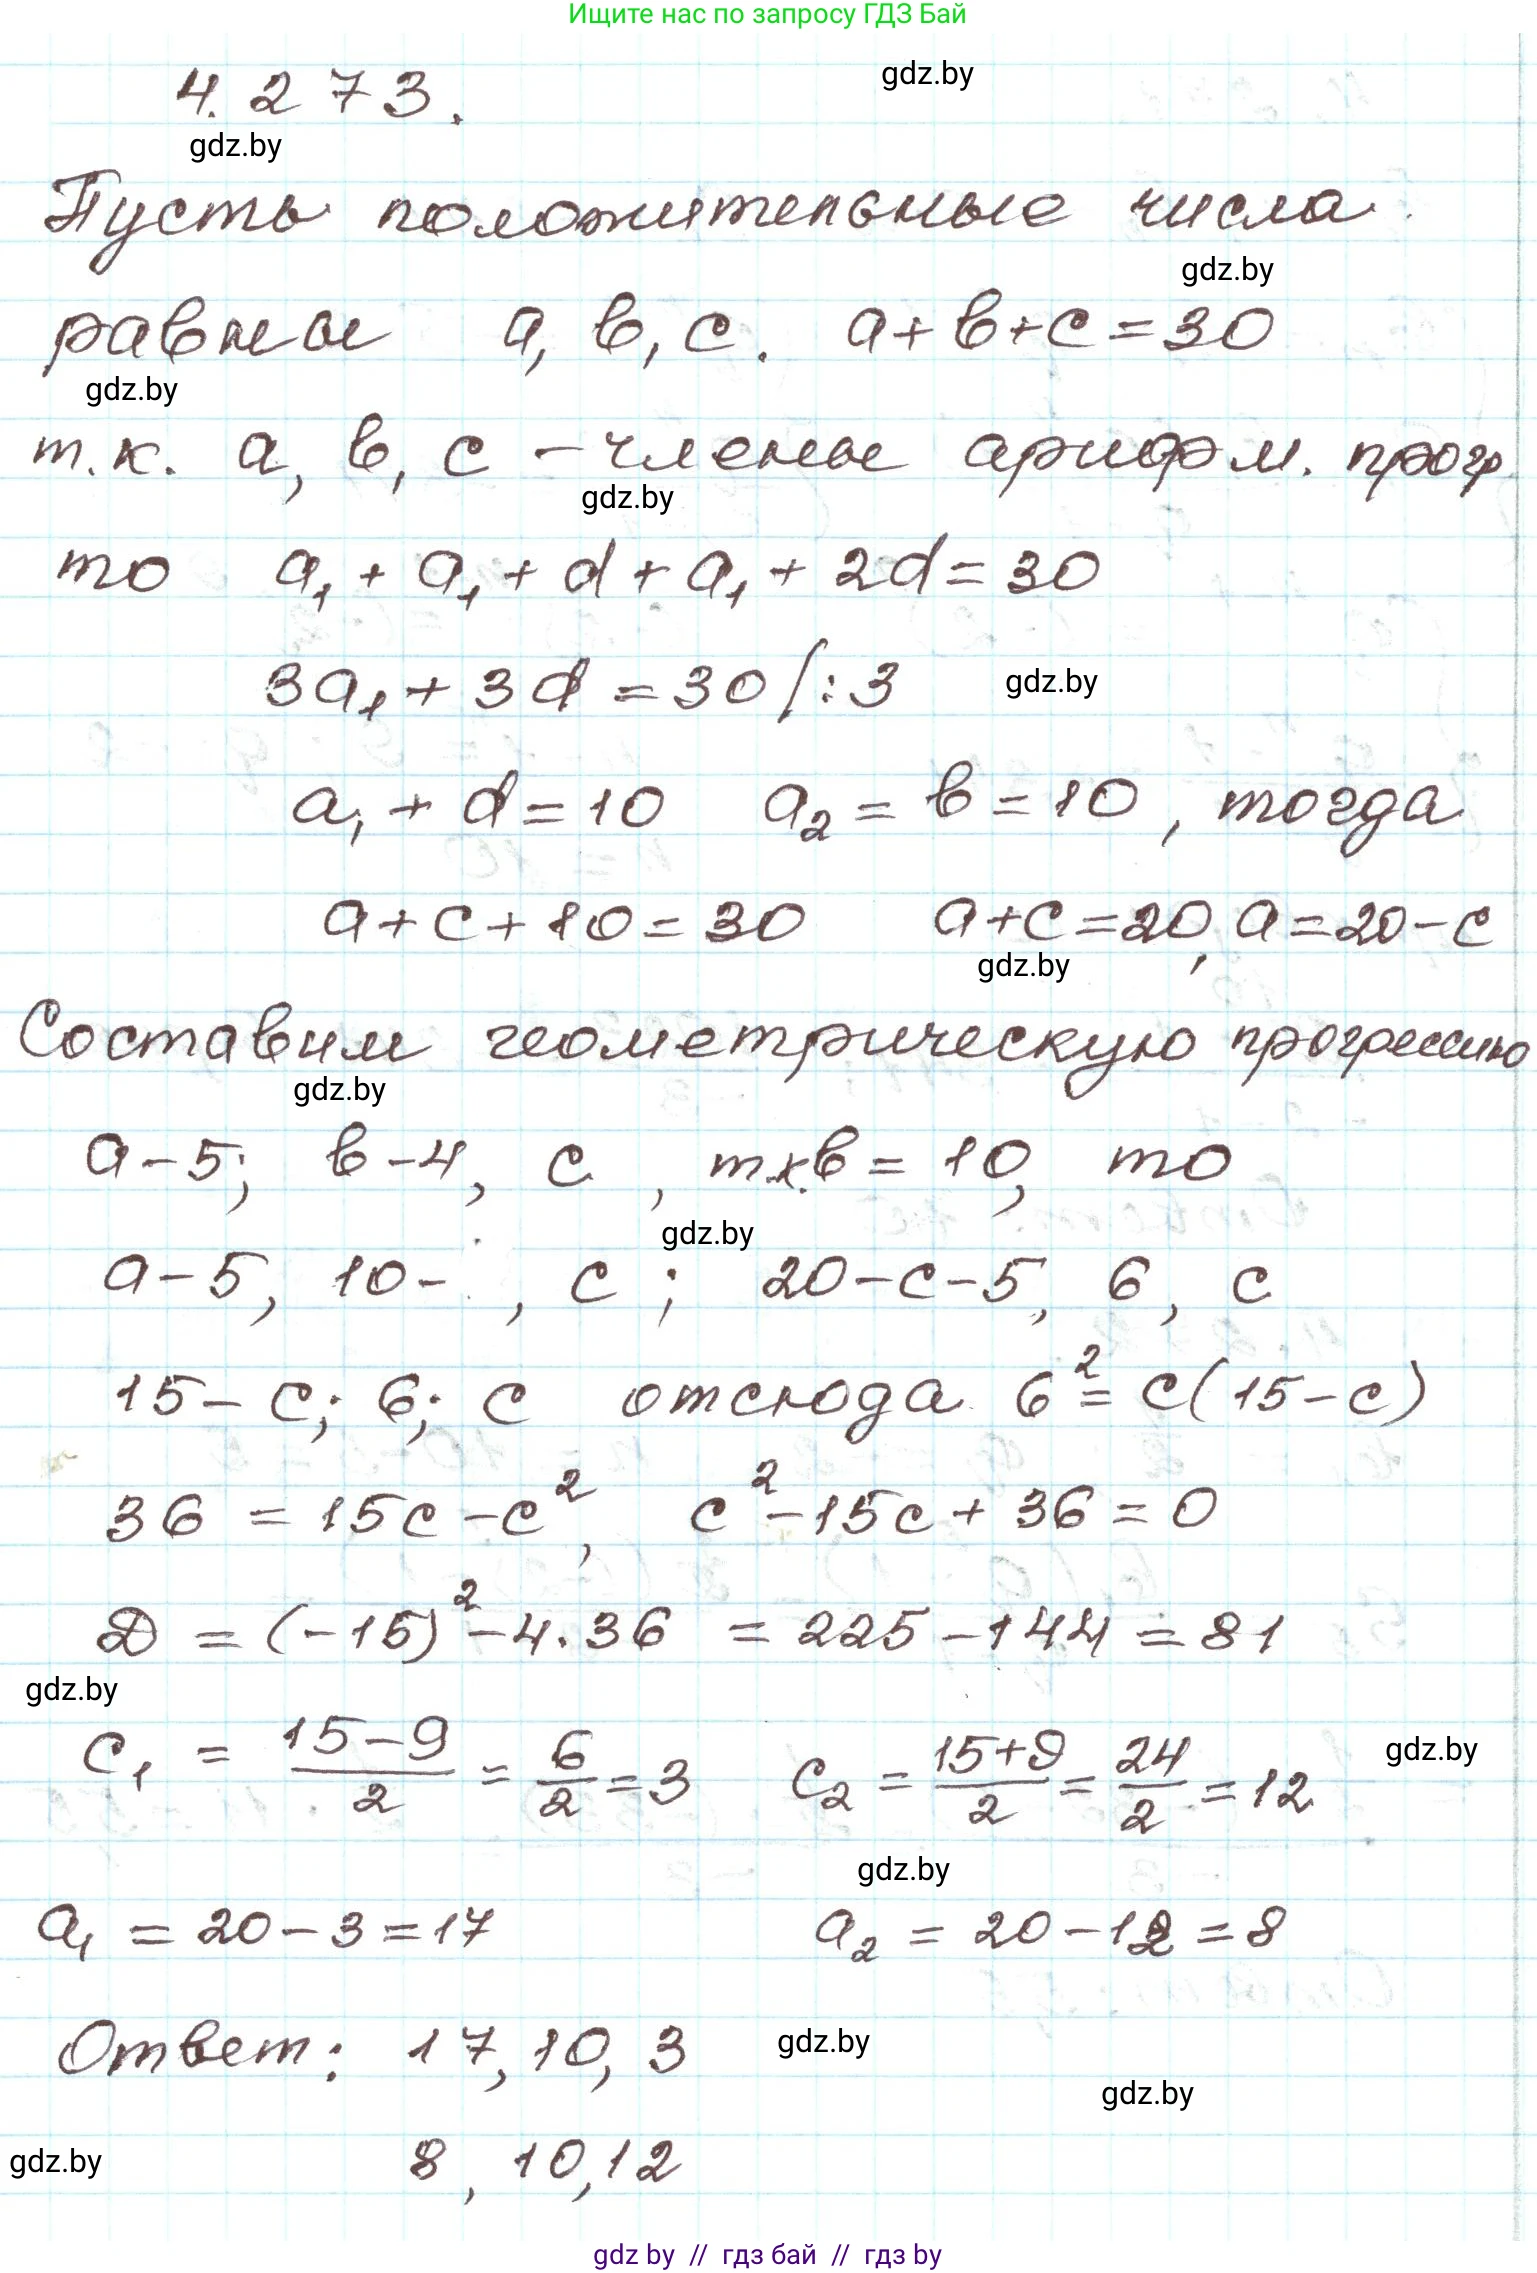 Ищите нас по запросу ГДЗ Бай
gdz.by
4.273.
gdz.by
Пусть положительные числа
gdz.by
равны a, b, c. a+b+c=30
gdz.by
т.к. a, b, c – члены арифм. прогр.
gdz.by
то a₁ + a₁ + d + a₁ + 2d = 30
3a₁ + 3d = 30 /:3 gdz.by
a₁ + d = 10 a₂ = b = 10, тогда
a+c+10=30 a+c=20, a=20-c
gdz.by
Составим геометрическую прогрессию
gdz.by
a-5; b-4, c, т.к. b=10, то
gdz.by
a-5, 10- , c; 20-c-5, 6, c
15-c; 6; c отсюда 6²=c(15-c)
36 = 15c-c², c²-15c+36=0
D = (-15)²-4·36 = 225-144=81
gdz.by
c₁ = (15-9)/2 = 6/2 = 3 c₂ = (15+9)/2 = 24/2 = 12 gdz.by
gdz.by
a₁ = 20-3=17 a₂ = 20-12=8
Ответ: 17, 10, 3 gdz.by
gdz.by
gdz.by 8, 10, 12
gdz by // гдз бай // гдз by